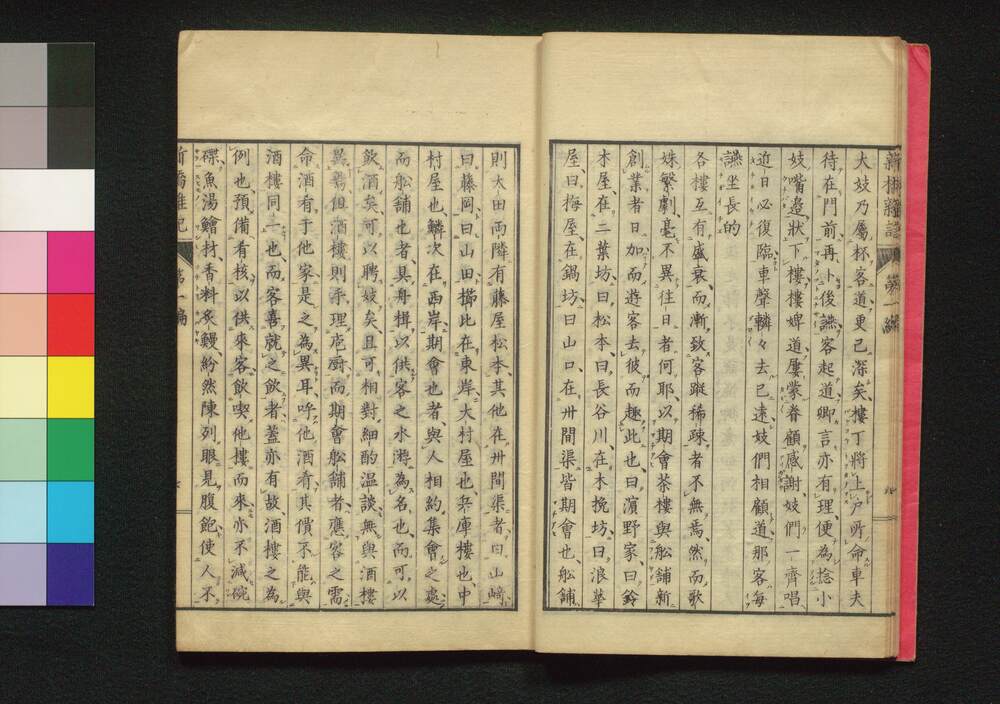 大妓乃屬杯客道更已深矣樓丁將上戸所命車夫
待在門前再卜後讌客起道卿言亦有理便為捻小
妓嘴邉狀下樓樓婢道屢蒙眷顧感謝妓們一齊唱
近日必復臨車聲轔々去已遠妓們相顧道那客每
讌坐長的
各樓互有盛衰而漸致客蹤稀疎者不無焉然而歌
姝繁劇毫不異往日者何耶以期會茶樓與舩舖新
創業者日加而遊客去彼而趣此也曰濵野家曰鈴
木屋在二葉坊曰松本曰長谷川在木挽坊曰浪華
屋曰梅屋在鍋坊曰山口在卅間渠皆期會也舩舖
則太田両隣有藤屋松本其他在卅間渠者曰山﨑
曰藤岡曰山田櫛比在東岸大村屋也兵庫樓也中
村屋也鱗次在西岸期會也者與人相約集會之處
而舩舖也者具舟楫以供客之水游為名也而可以
飲酒矣可以聘妓矣且可相對細酌温談無與酒樓
異焉但酒樓則手理庖厨而期會舩舖者應客之需
命酒肴于他家是之為異耳呼他酒肴其價不能與
酒樓同一也而客喜就之飲者蓋亦有故酒樓之為
例也預備肴核以供來客飲喫他樓而來亦不減碗
碟魚湯鱠材香料炙鰻紛然陳列眼是腹飽使人不
新橋雜記 第一編